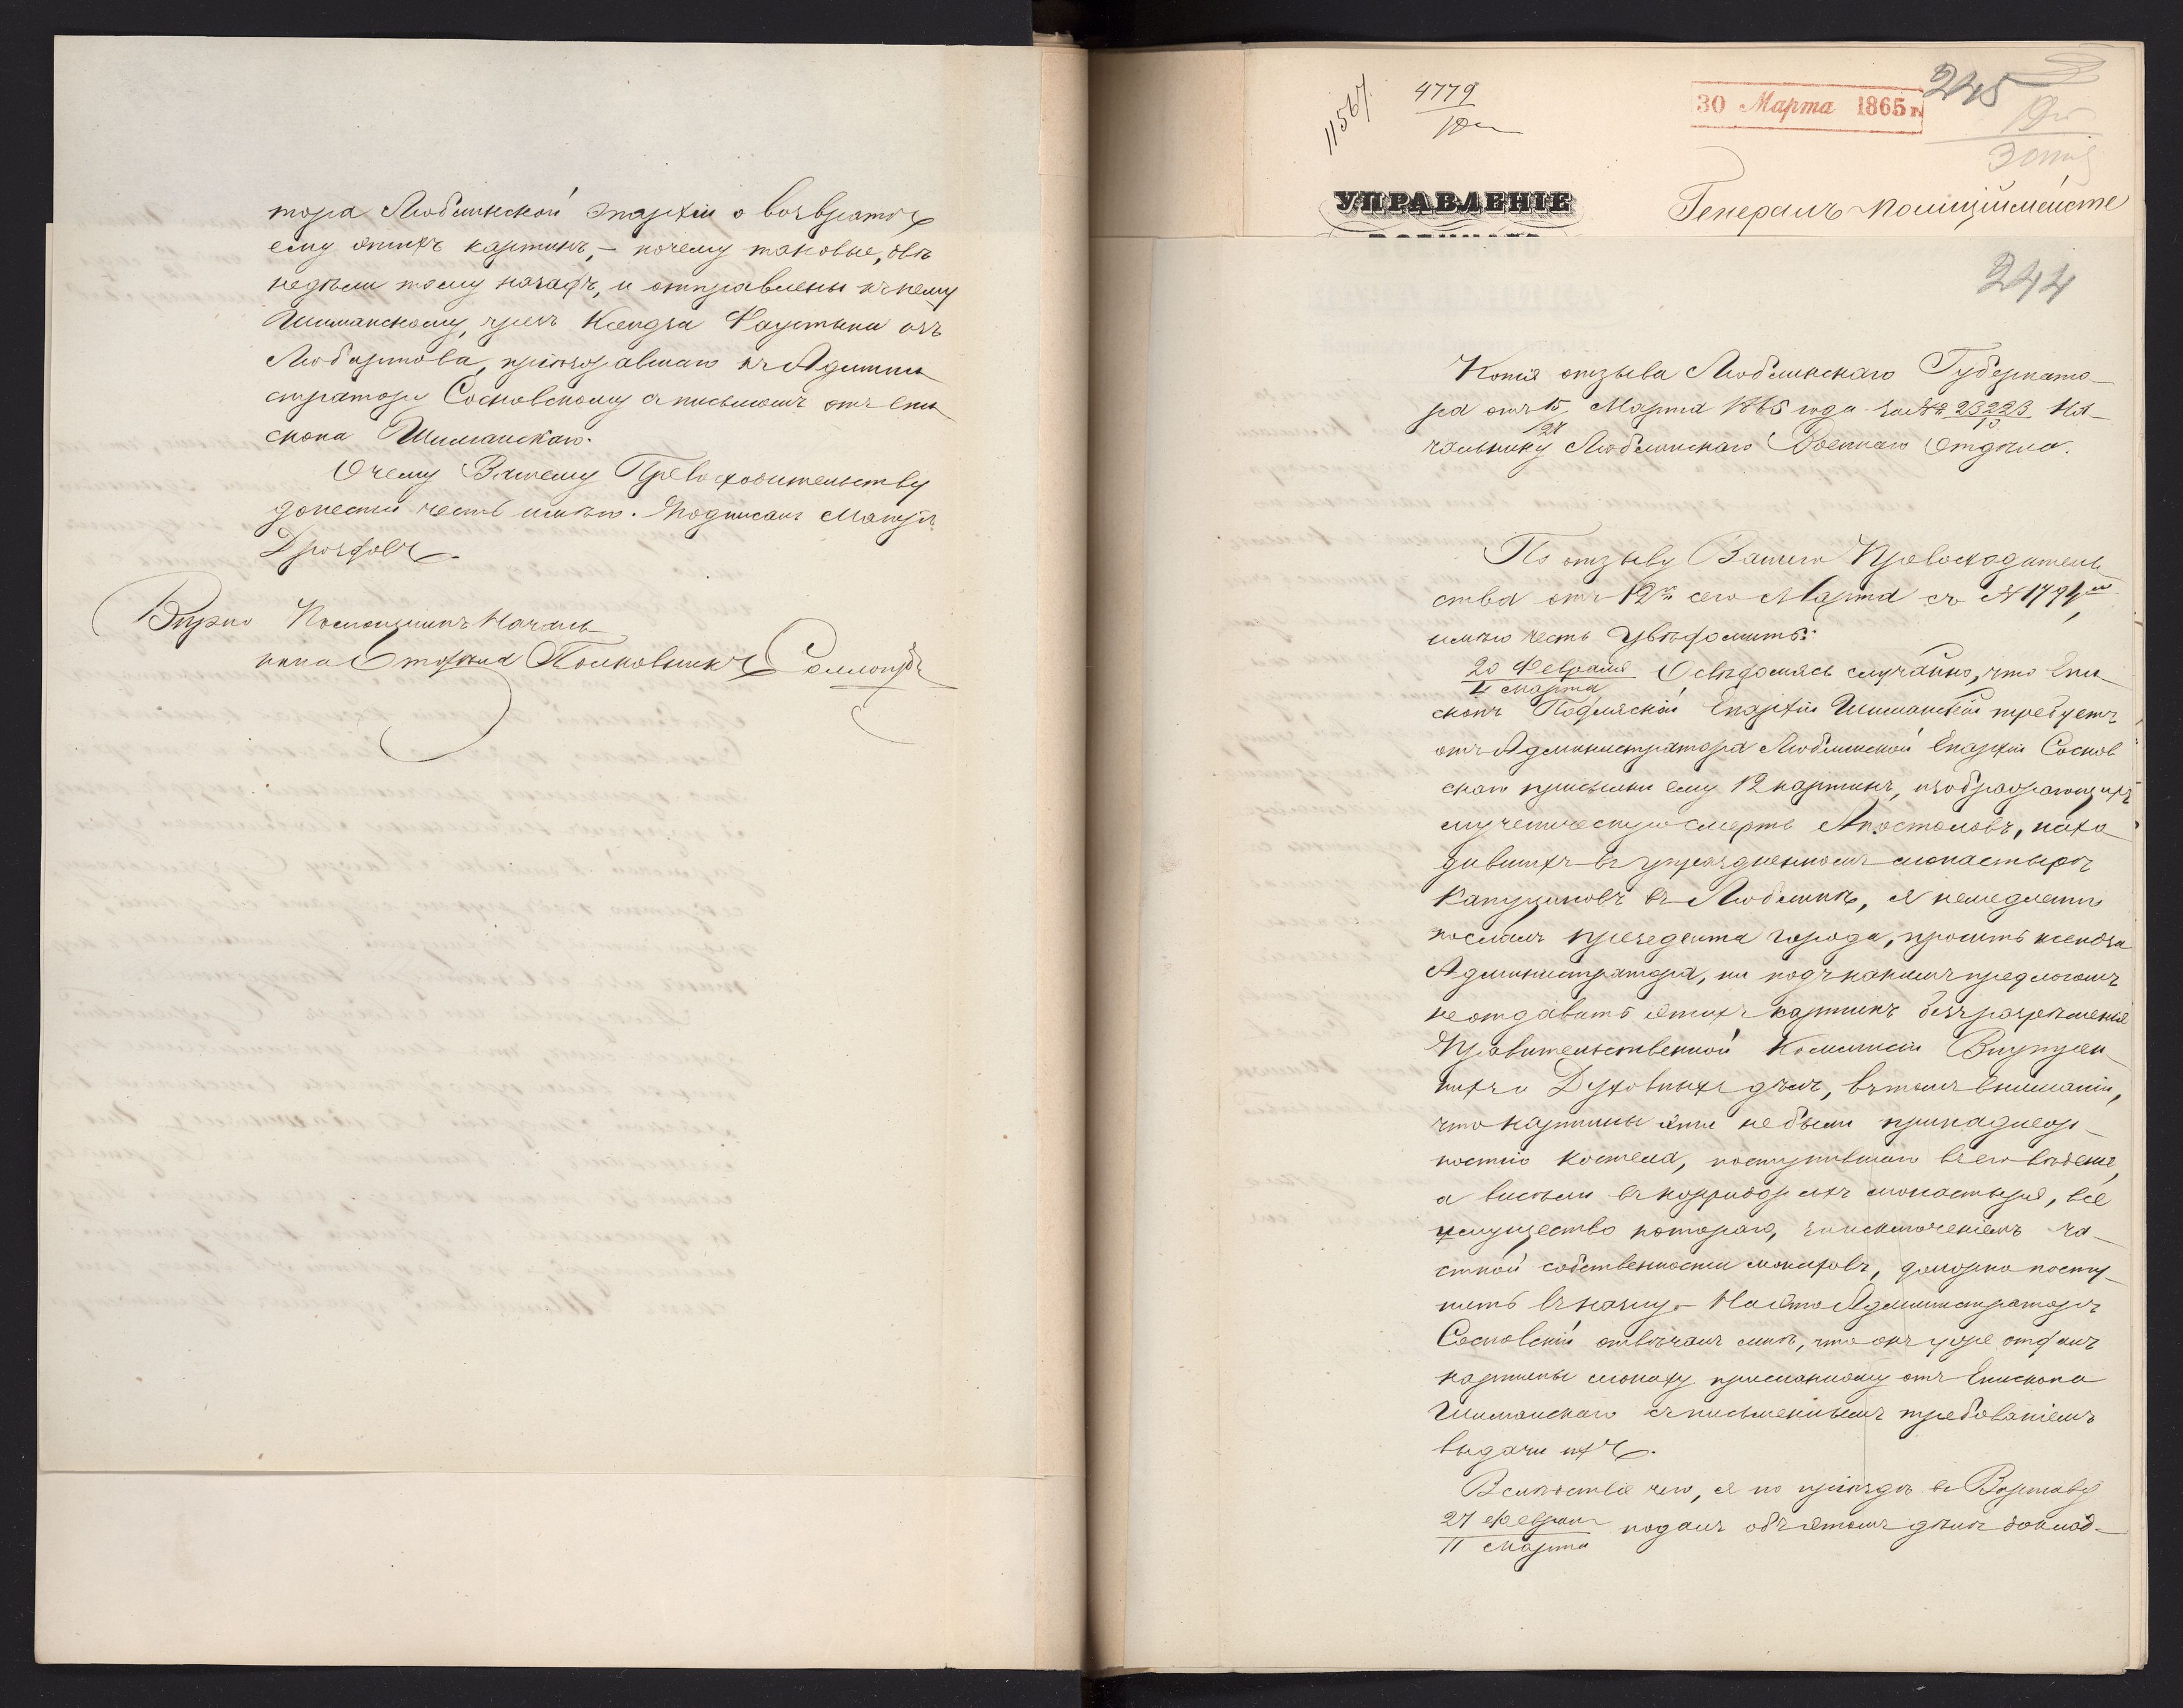 тора Люблинской Эпархіи о возвратѣ
ему этихъ картинъ, – почему таковые, двѣ
недѣли тому назадъ, и отправлены къ нему
Шиманскому, чрезъ Ксендза Фаустына изъ
Любартова, пріѣзжавшаго къ Админи-
стратору Сосновскому съ письмомъ отъ Епи-
скопа Шиманскаго.
О чемъ Вашему Превосходительству
донести честь имѣю. Подписалъ Маіоръ
Дроздовъ.
Вѣрно Помощникъ Началь-
ника Отдѣла Полковникъ
11567.
4779
30 Марта 1865 г.
245
УПРАВЛЕНІЕ
Генералъ-полиціймейсте
244
Копія отзыва Люблинскаго Губернато-
ра отъ 15 Марта 1865 года за № 23223 На-
чальнику Люблинскаго Военнаго Отдѣла.
По отзыву Вашего Превосходитель-
ства отъ 12го сего Марта за № 1794
имѣю честь увѣдомить:
20 Февраля
4 Марта
Освѣдомясь случайно, что Епи-
скопъ Подляской Епархіи Шиманскій требуетъ
отъ Администратора Люблинской Епархіи Соснов-
скаго присылки ему 12 картинъ, изображающихъ
мученическую смерть Апостоловъ, нахо-
дившихъ въ упраздненномъ монастырѣ
Капуциновъ въ Люблинѣ, я немедленно
послалъ президента города, просить ксендза
Администратора, ни подъ какимъ предлогомъ
не отдавать этихъ картинъ безъ разрѣшенія
Правительственной Коммисіи Внутрен-
нихъ и Духовныхъ дѣлъ, въ томъ вниманіи,
что картины эти не были принадлеж-
ностію костела, поступившаго въ его вѣденіе,
а висѣли въ корридорахъ монастыря, все
имущество котораго, за исключеніемъ ча-
стной собственности монаховъ, должно посту-
пить въ казну. – На это Администраторъ
Сосновскій отвѣчалъ мнѣ, что онъ уже отдалъ
картины монаху присланному отъ Епископа
Шиманскаго съ письменнымъ требованіемъ
выдачи ихъ.
Вслѣдствіе чего, я по пріѣздѣ въ Варшаву
27 Февраля
11 Марта
подалъ объ этомъ дѣлѣ доклад-